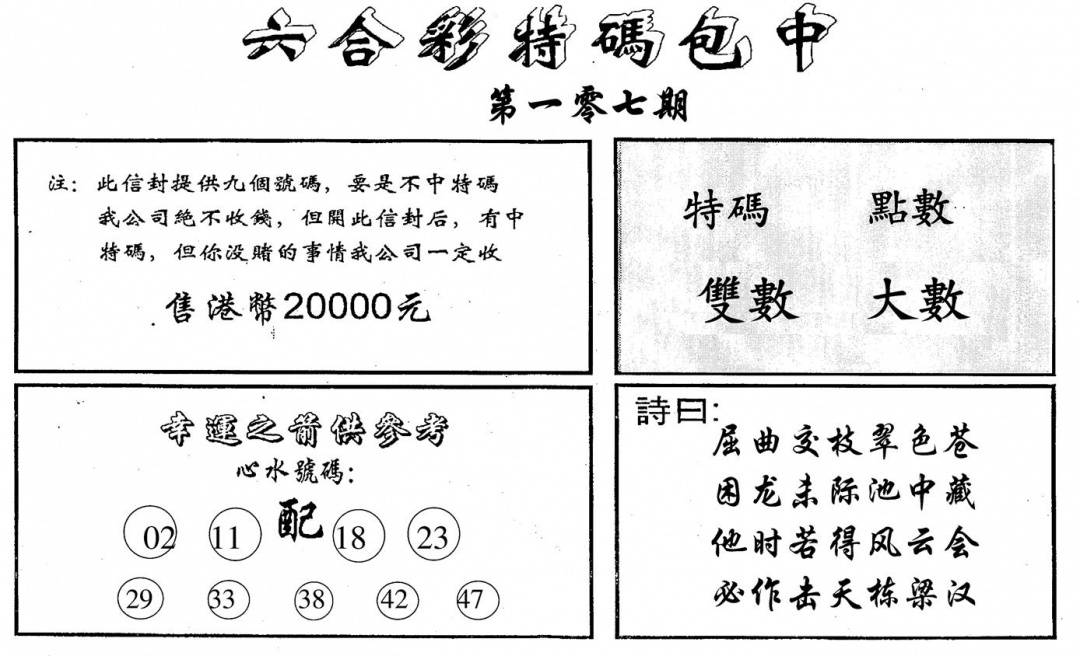 六合彩特碼包中
第一零七期
注：此信封提供九個號碼，要是不中特碼
我公司絕不收錢，但開此信封后，有中
特碼，但你没賭的事情我公司一定收
售港幣20000元
特碼 點數
雙數 大數
幸運之箭供參考
心水號碼：
02 11 配 18 23
29 33 38 42 47
詩曰：
屈曲交枝翠色苍
困龙未际池中藏
他时若得风云会
必作击天栋梁汉